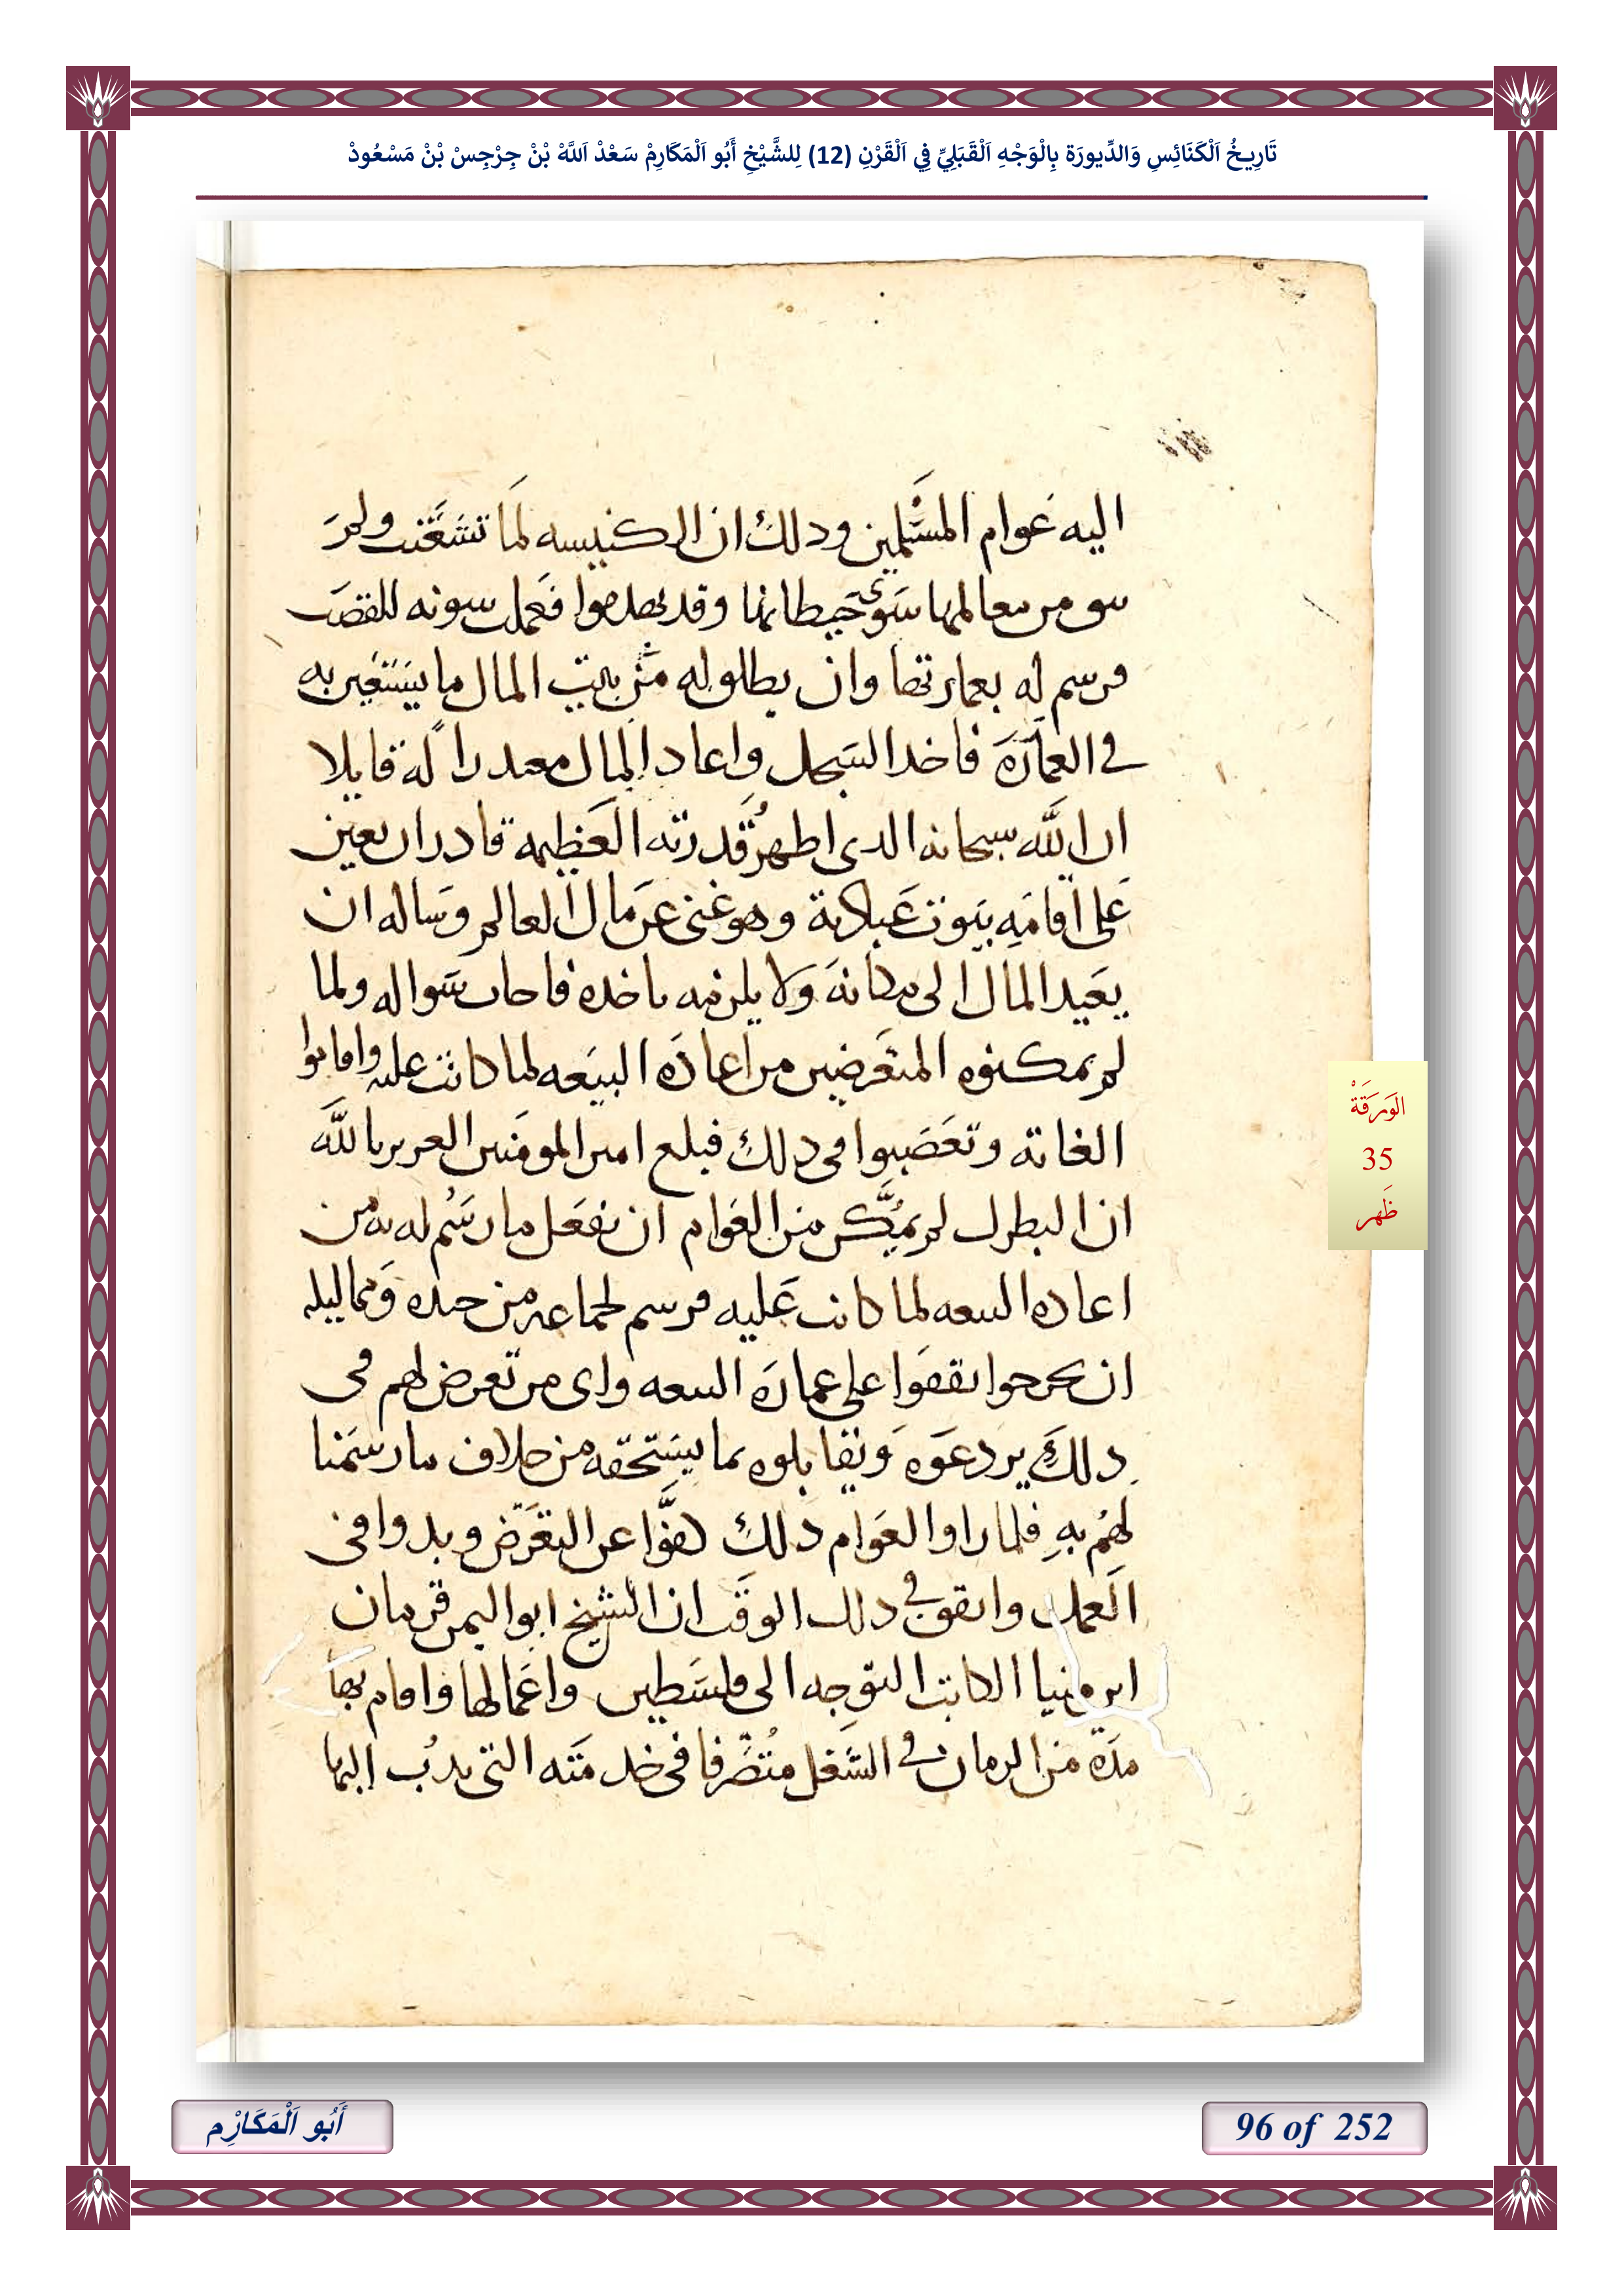 تَارِيخُ اَلْكَنَائِسِ وَالدِّيورَة بِالْوَجْهِ اَلْقَبَلِيِّ فِي اَلْقَرْنِ (12) لِلشَّيْخِ أَبُو اَلْمَكَارِمْ سَعْدْ اَللَّهْ بْنْ جِرْجِسْ بْنْ مَسْعُودْ
اليه عوام المسلمين ودلك ان الكنيسه لما تشعتت ولم
سو من معالمها سوى حيطانها وقد تهدموا فعمل سونه للقصب
فرسم له بعمارتها وان يطلق له من بيت المال ما يستعين به
في العماره فاخد السجل واعاد المال معتدرا له قايلا
ان الله سبحانه الدى اظهر قدرته العظيمه قادر ان يعين
على اقامه بيوت عباداته وهو غنى عن مال العالم وساله ان
يعيد المال الى مكانه ولا يلزمه باخده فاجاب سواله ولما
لم يمكنوه المتعرضين من اعاده البيعه لما كانت عليه واقاموا
الغاته وتعصبوا في دلك فبلغ امير المومنين العزيز بالله
ان البطرك لم يمكن من العوام ان يفعل ما رسم له به من
اعاده البيعه لما كانت عليه فرسم لجماعه من جنده ومماليله
ان يخرجوا يقفوا على عماره البيعه واى من تعرض لهم في
دلك يردعوه ويقابلوه بما يستحقه من خلاف ما رسمنا
لهم به فلما راوا العوام دلك كفوا عن التعرض وبدوا في
العمل واتفق في دلك الوقت ان الشيخ ابو اليمن قزمان
ابن مينا الكاتب التوجه الى فلسطين واعمالها واقام بها
مده من الزمان في الشغل متصرفا في خدمته التي ندب اليها
الوَرَقَةْ
35
ظَهر
أَبُو اَلْمَكَارْم
96 of 252